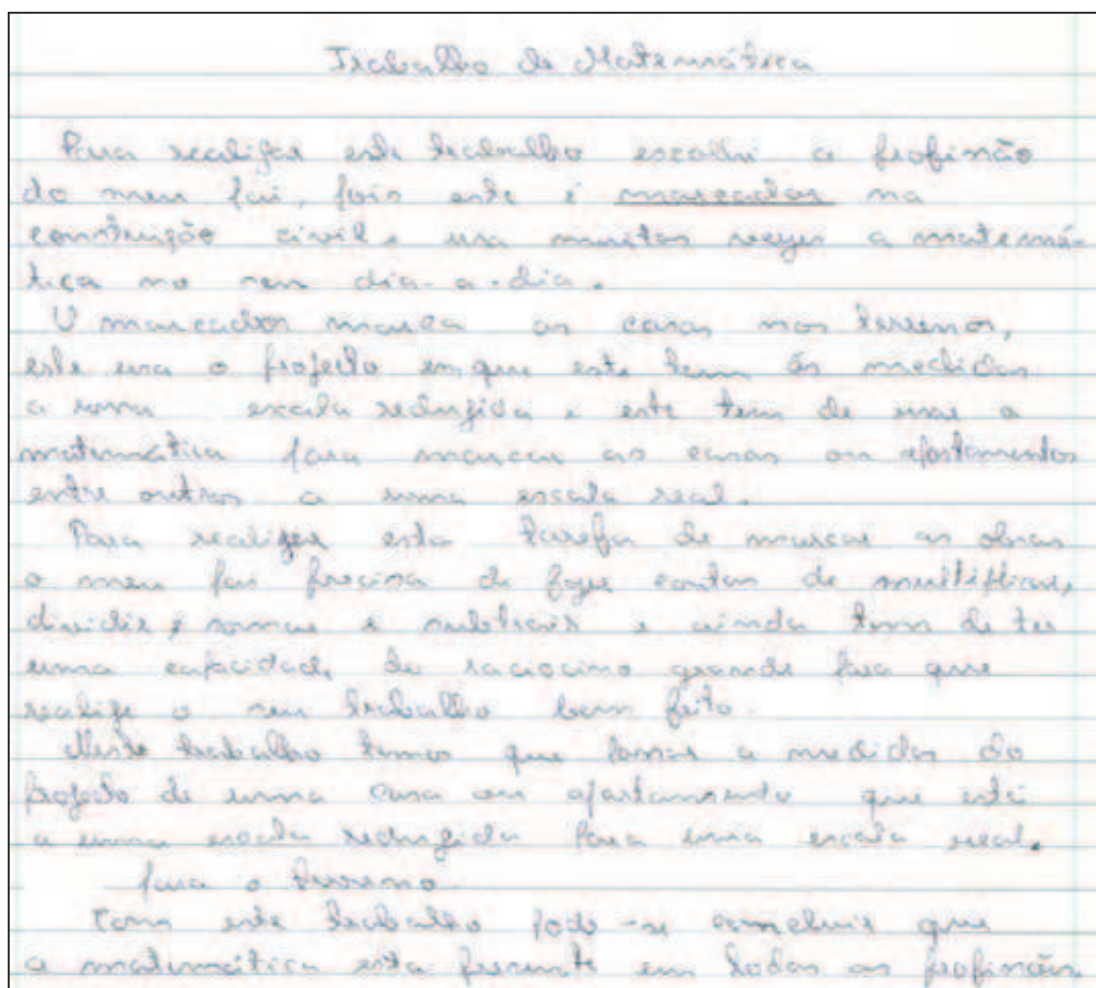 Trabalho de Matemática
Para realizar este trabalho escolhi a profissão
do meu pai, pois este é marcador na
construção civil e usa muitas vezes a matemá-
tica no seu dia-a-dia.
O marcador marca as casas nos terrenos,
este usa o projecto em que este tem as medidas
a uma escala reduzida e este tem de usar a
matemática para marcar as casas ou apartamentos
entre outros a uma escala real.
Para realizar esta tarefa de marcar as obras
o meu pai precisa de fazer contas de multiplicar,
dividir, somar e subtrair e ainda tem de ter
uma capacidade de raciocino grande para que
realize o seu trabalho bem feito.
Neste trabalho temos que tomar a medidas do
projecto de uma casa ou apartamento que está
a uma escala reduzida para uma escala real.
para o terreno.
Com este trabalho pode-se concluir que
a matemática esta presente em todas as profissões